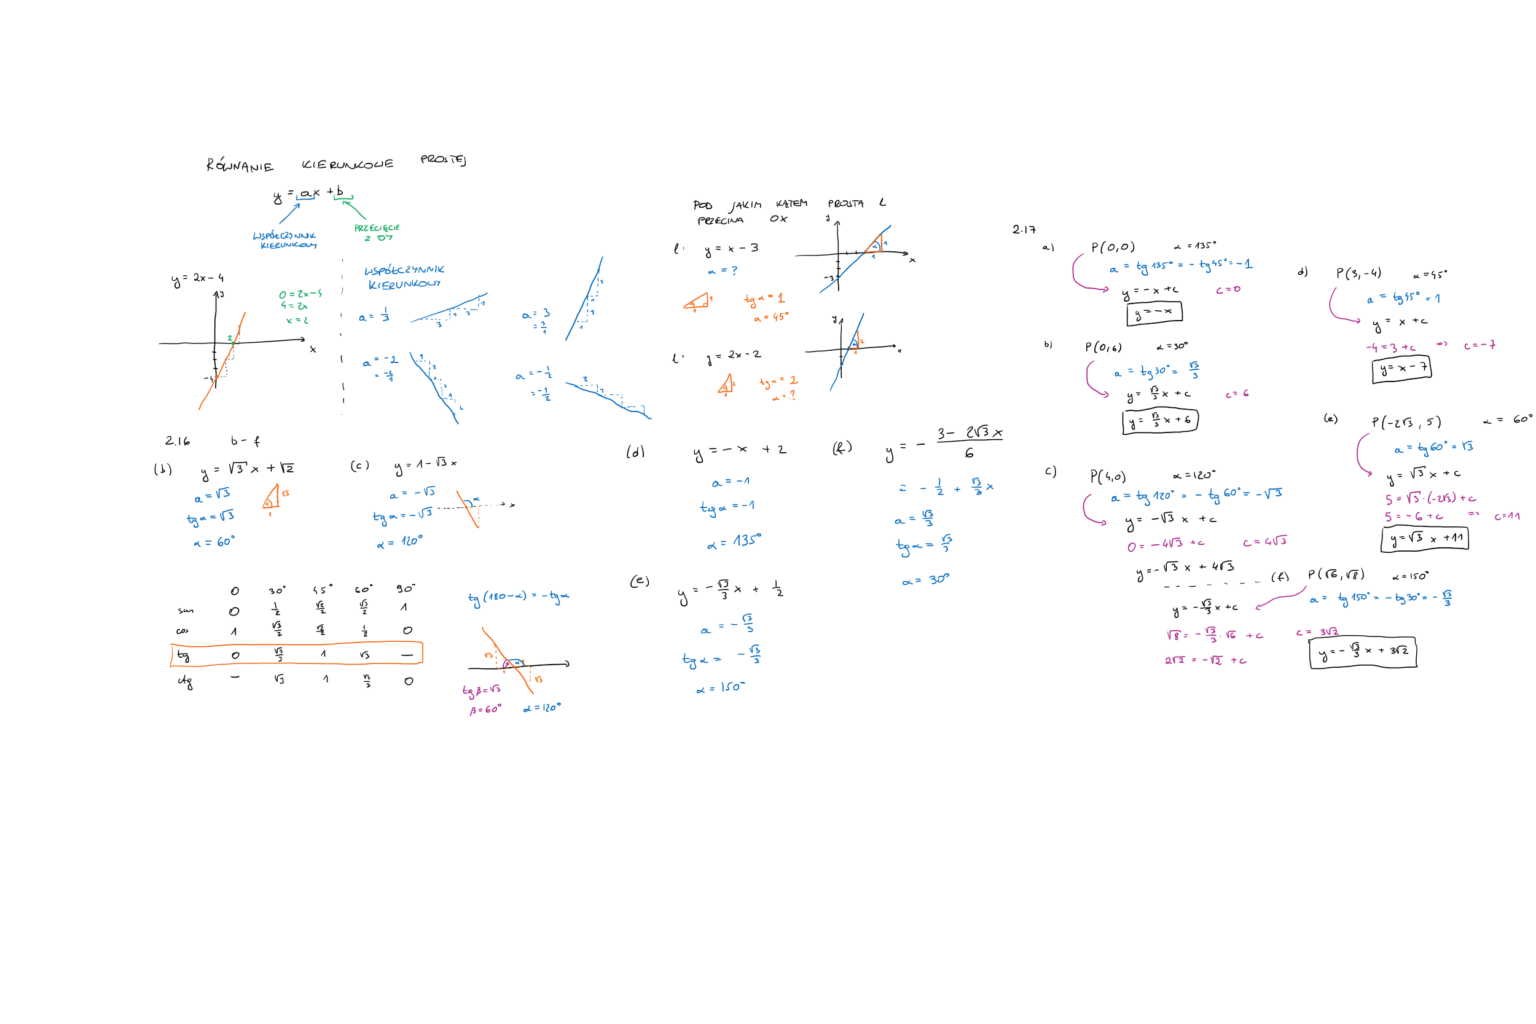 RÓWNANIE KIERUNKOWE PROSTEJ
y = ax + b
WSPÓŁCZYNNIK
KIERUNKOWY
PRZECIĘCIE
Z OY
y = 2x - 4
y
x
2
-4
0 = 2x - 4
4 = 2x
x = 2
WSPÓŁCZYNNIK
KIERUNKOWY
a = 1/3
a = 3
= 3/1
a = -2
= -2/1
a = -1/2
= -1/2
POD JAKIM KĄTEM PROSTA L
PRZECINA OX
l: y = x - 3
α = ?
tg α = 1
α = 45°
l: y = 2x - 2
tg α = 2
α = ?
2.16 b - f
(b) y = √3 x + √2
a = √3
tg α = √3
α = 60°
(c) y = 1 - √3 x
a = -√3
tg α = -√3
α = 120°
(d) y = -x + 2
a = -1
tg α = -1
α = 135°
(e) y = -√3/3 x + 1/2
a = -√3/3
tg α = -√3/3
α = 150°
(f) y = - (3 - 2√3 x)/6
= -1/2 + √3/3 x
a = √3/3
tg α = √3/3
α = 30°
0 30° 45° 60° 90°
sin 0 1/2 √2/2 √3/2 1
cos 1 √3/2 √2/2 1/2 0
tg 0 √3/3 1 √3 —
ctg — √3 1 √3/3 0
tg(180 - α) = -tg α
√3
√3
tg β = √3
β = 60° α = 120°
2.17
a) P(0,0) α = 135°
a = tg 135° = -tg 45° = -1
y = -x + c c = 0
y = -x
b) P(0,6) α = 30°
a = tg 30° = √3/3
y = √3/3 x + c c = 6
y = √3/3 x + 6
c) P(4,0) α = 120°
a = tg 120° = -tg 60° = -√3
y = -√3 x + c
0 = -4√3 + c c = 4√3
y = -√3 x + 4√3
d) P(3,-4) α = 45°
a = tg 45° = 1
y = x + c
-4 = 3 + c => c = -7
y = x - 7
(e) P(-2√3, 5) α = 60°
a = tg 60° = √3
y = √3 x + c
5 = √3·(-2√3) + c
5 = -6 + c => c = 11
y = √3 x + 11
(f) P(√6, √8) α = 150°
a = tg 150° = -tg 30° = -√3/3
y = -√3/3 x + c
√8 = -√3/3·√6 + c c = 3√2
2√2 = -√2 + c
y = -√3/3 x + 3√2